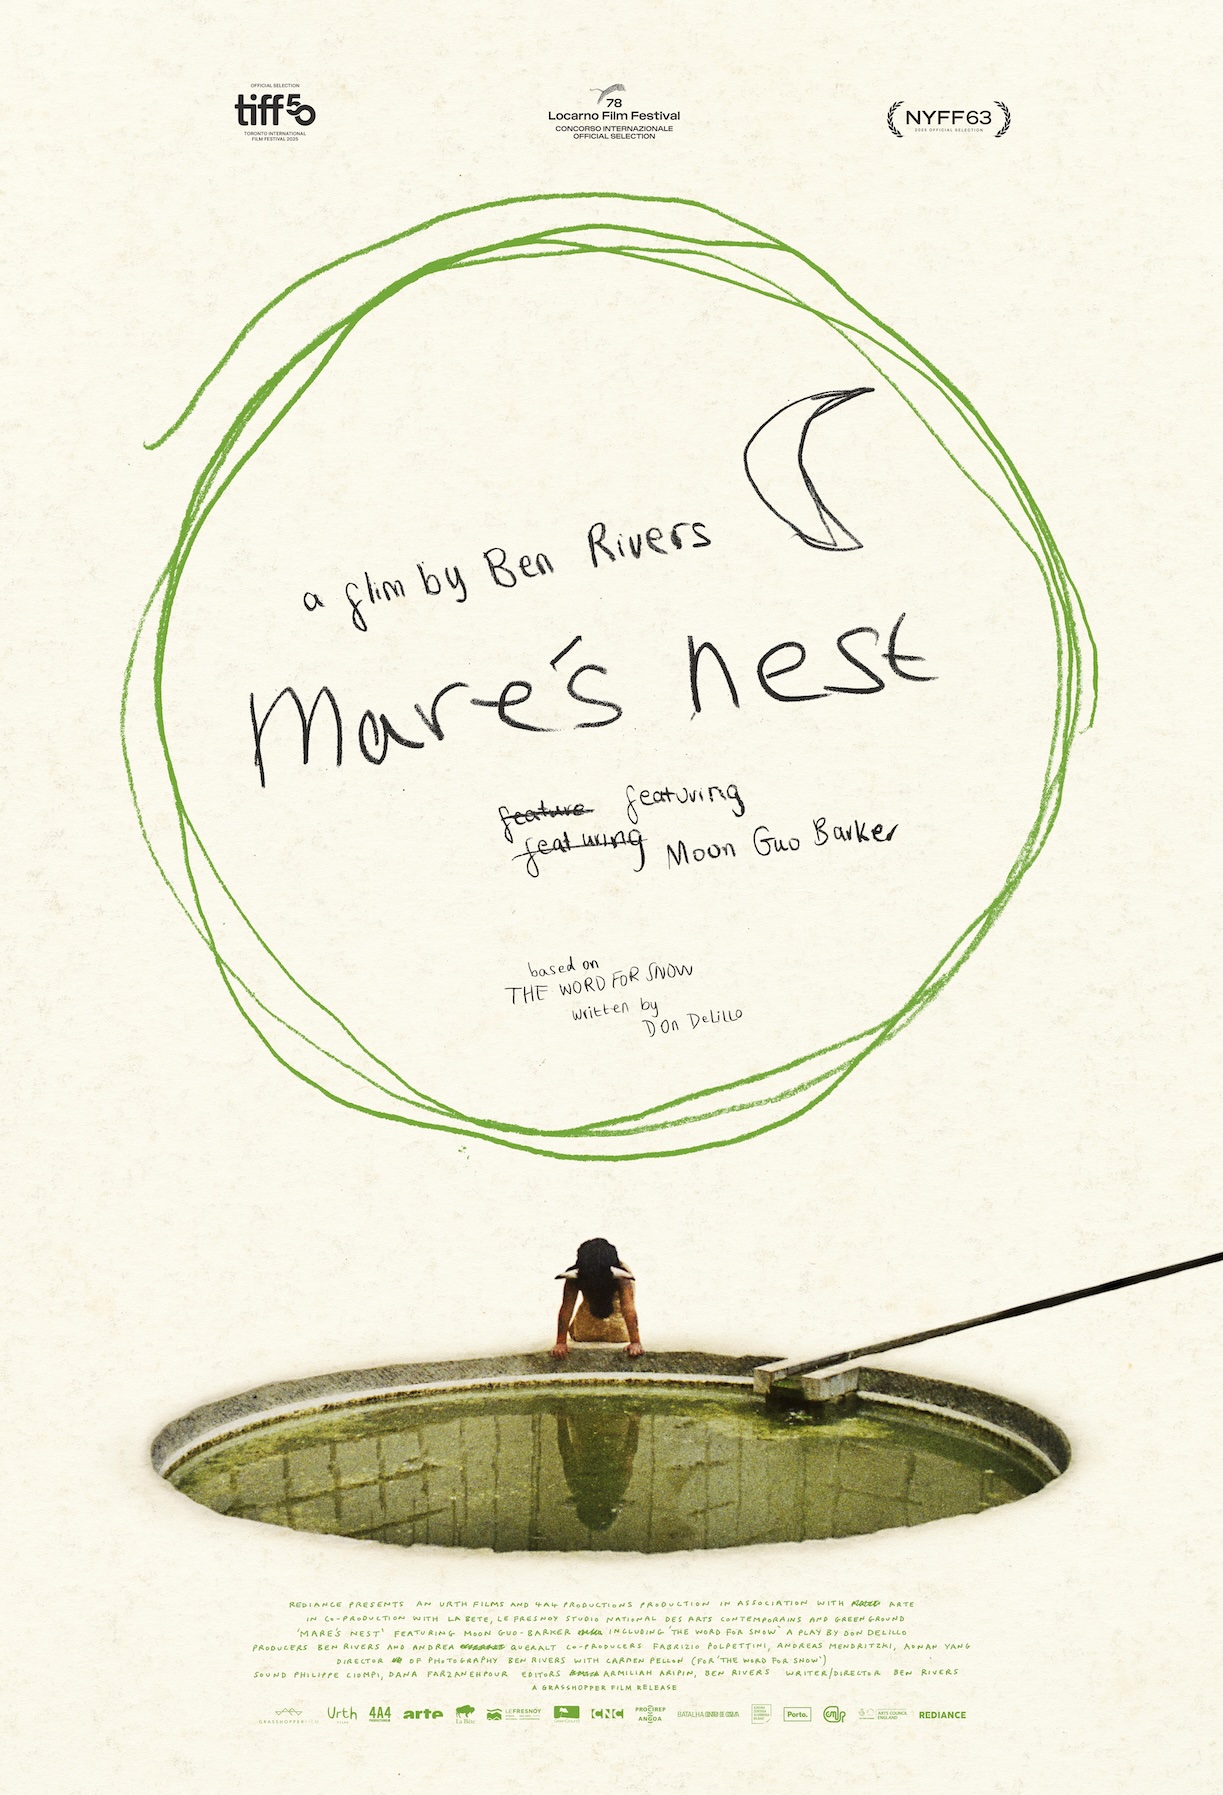 OFFICIAL SELECTION
tiff50
TORONTO INTERNATIONAL
FILM FESTIVAL 2025
78
Locarno Film Festival
CONCORSO INTERNAZIONALE
OFFICIAL SELECTION
NYFF63
2025 OFFICIAL SELECTION
a flim by Ben Rivers
Mare's nest
feature featuring
featuring Moon Guo Barker
based on
THE WORD FOR SNOW
written by
Don DeLillo
REDIANCE PRESENTS AN URTH FILMS AND 4A4 PRODUCTIONS PRODUCTION IN ASSOCIATION WITH ARTE
IN CO-PRODUCTION WITH LA BETE, LE FRESNOY STUDIO NATIONAL DES ARTS CONTEMPORAINS AND GREENGROUND
'MARE'S NEST' FEATURING MOON GUO-BARKER INCLUDING 'THE WORD FOR SNOW' A PLAY BY DON DELILLO
PRODUCERS BEN RIVERS AND ANDREA QUERALT CO-PRODUCERS FABRIZIO POLPETTINI, ANDREAS MENDRITZKI, AONAN YANG
DIRECTOR OF PHOTOGRAPHY BEN RIVERS WITH CARMEN PELLON (FOR 'THE WORD FOR SNOW')
SOUND PHILIPPE CIOMPI, DANA FARZANEHPOUR EDITORS ARMILIAH ARIPIN, BEN RIVERS WRITER/DIRECTOR BEN RIVERS
A GRASSHOPPER FILM RELEASE
GRASSHOPPERFILM
Urth
FILMS
4A4
PRODUCTIONS
arte
La Bête
LE FRESNOY
CNC
PROCIREP
ANGOA
BATALHA CENTRO DE CINEMA
Porto.
ARTS COUNCIL
ENGLAND
REDIANCE